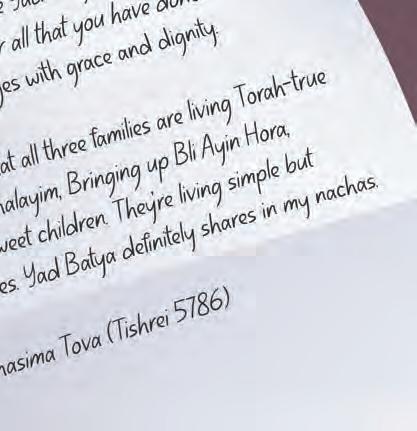 r all that you have done
ges with grace and dignity.
at all three families are living Torah-true
halayim, Bringing up Bli Ayin Hora,
weet children. They're living simple but
es. Yad Batya definitely shares in my nachas.
hasima Tova (Tishrei 5786)